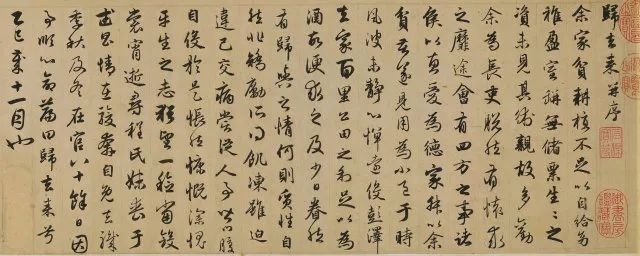 歸去来并序
余家貧耕植不足以自給幼
稚盈室缾無儲粟生生之
資未見其術親故多勸
余為長吏脫然有懷求
之靡途會有四方之事諸
侯以惠愛為德家叔以余
貧苦遂見用為小邑于時
風波未静心憚遠役彭澤
去家百里公田之利足以為
酒故便求之及少日眷然
有歸與之情何則質性自
然非矯勵所得飢凍雖迫
違己交病嘗從人事皆口腹
自役於是悵然慷慨深愧
平生之志猶望一稔當斂
裳宵逝尋程氏妹喪于
武昌情在駿奔自免去職
季秋及冬在官八十餘日因
事順心命篇曰歸去来兮
乙巳歲十一月也